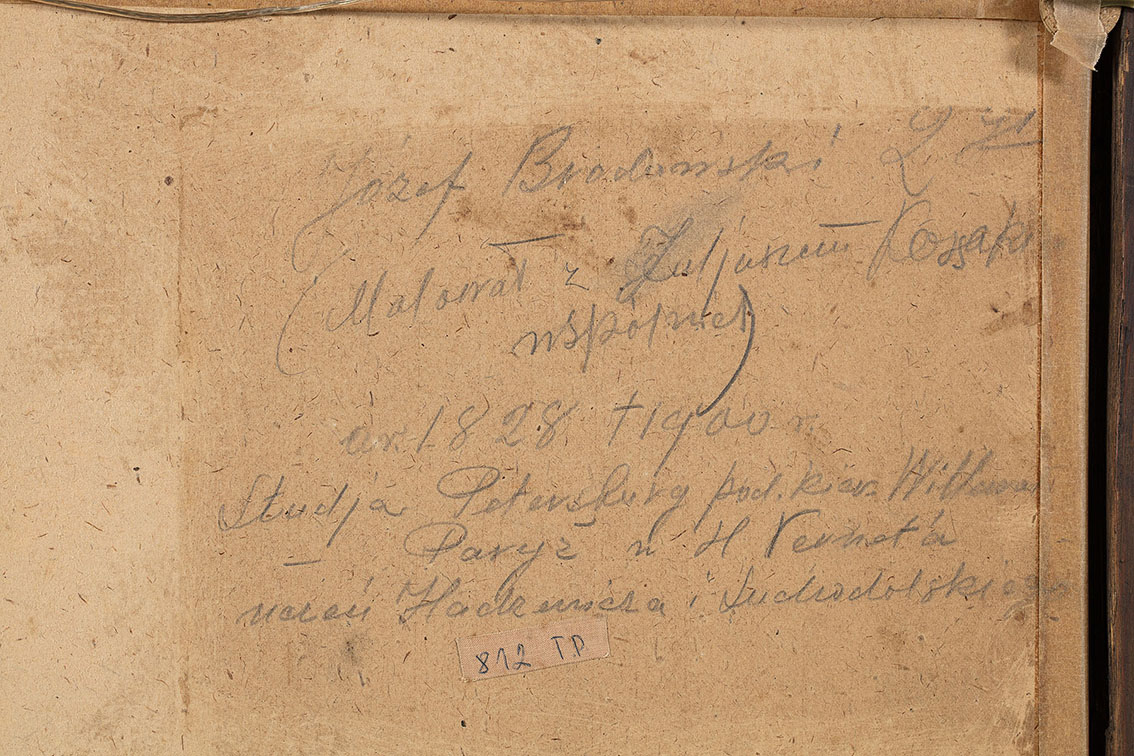 Józef Brodowski
(Malował z Juljuszem Kossak
wspólnie)
ur. 1828 †1900 r.
Studja Petersburg pod. kier. Willewa
Paryż u H Verneta
uczeń Hadziewicza i Suchodolskiego
812 TP